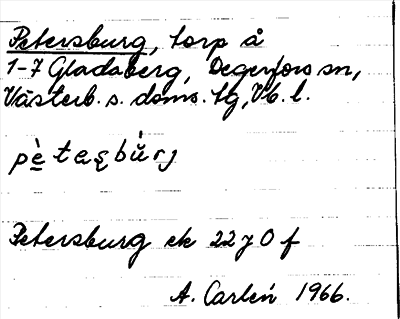 Petersburg, torp å
1-7 Gladaberg, Degerfors sn,
Västerb. s. doms. tg, Vb. l.
pè̱taʂbùrj
Petersburg ek 22 J 0 f
A. Carlén 1966.